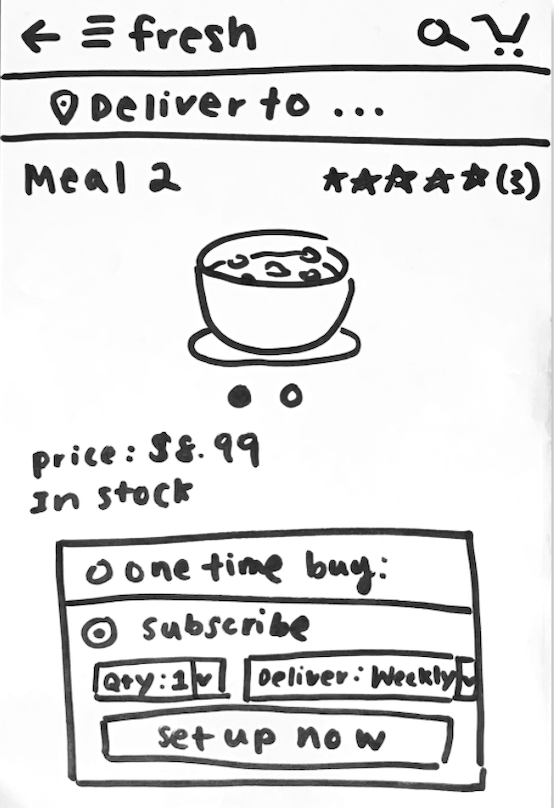 fresh
Deliver to ...
Meal 2 (3)
price: $8.99
In stock
one time buy:
subscribe
Qty:1 Deliver: Weekly
set up now